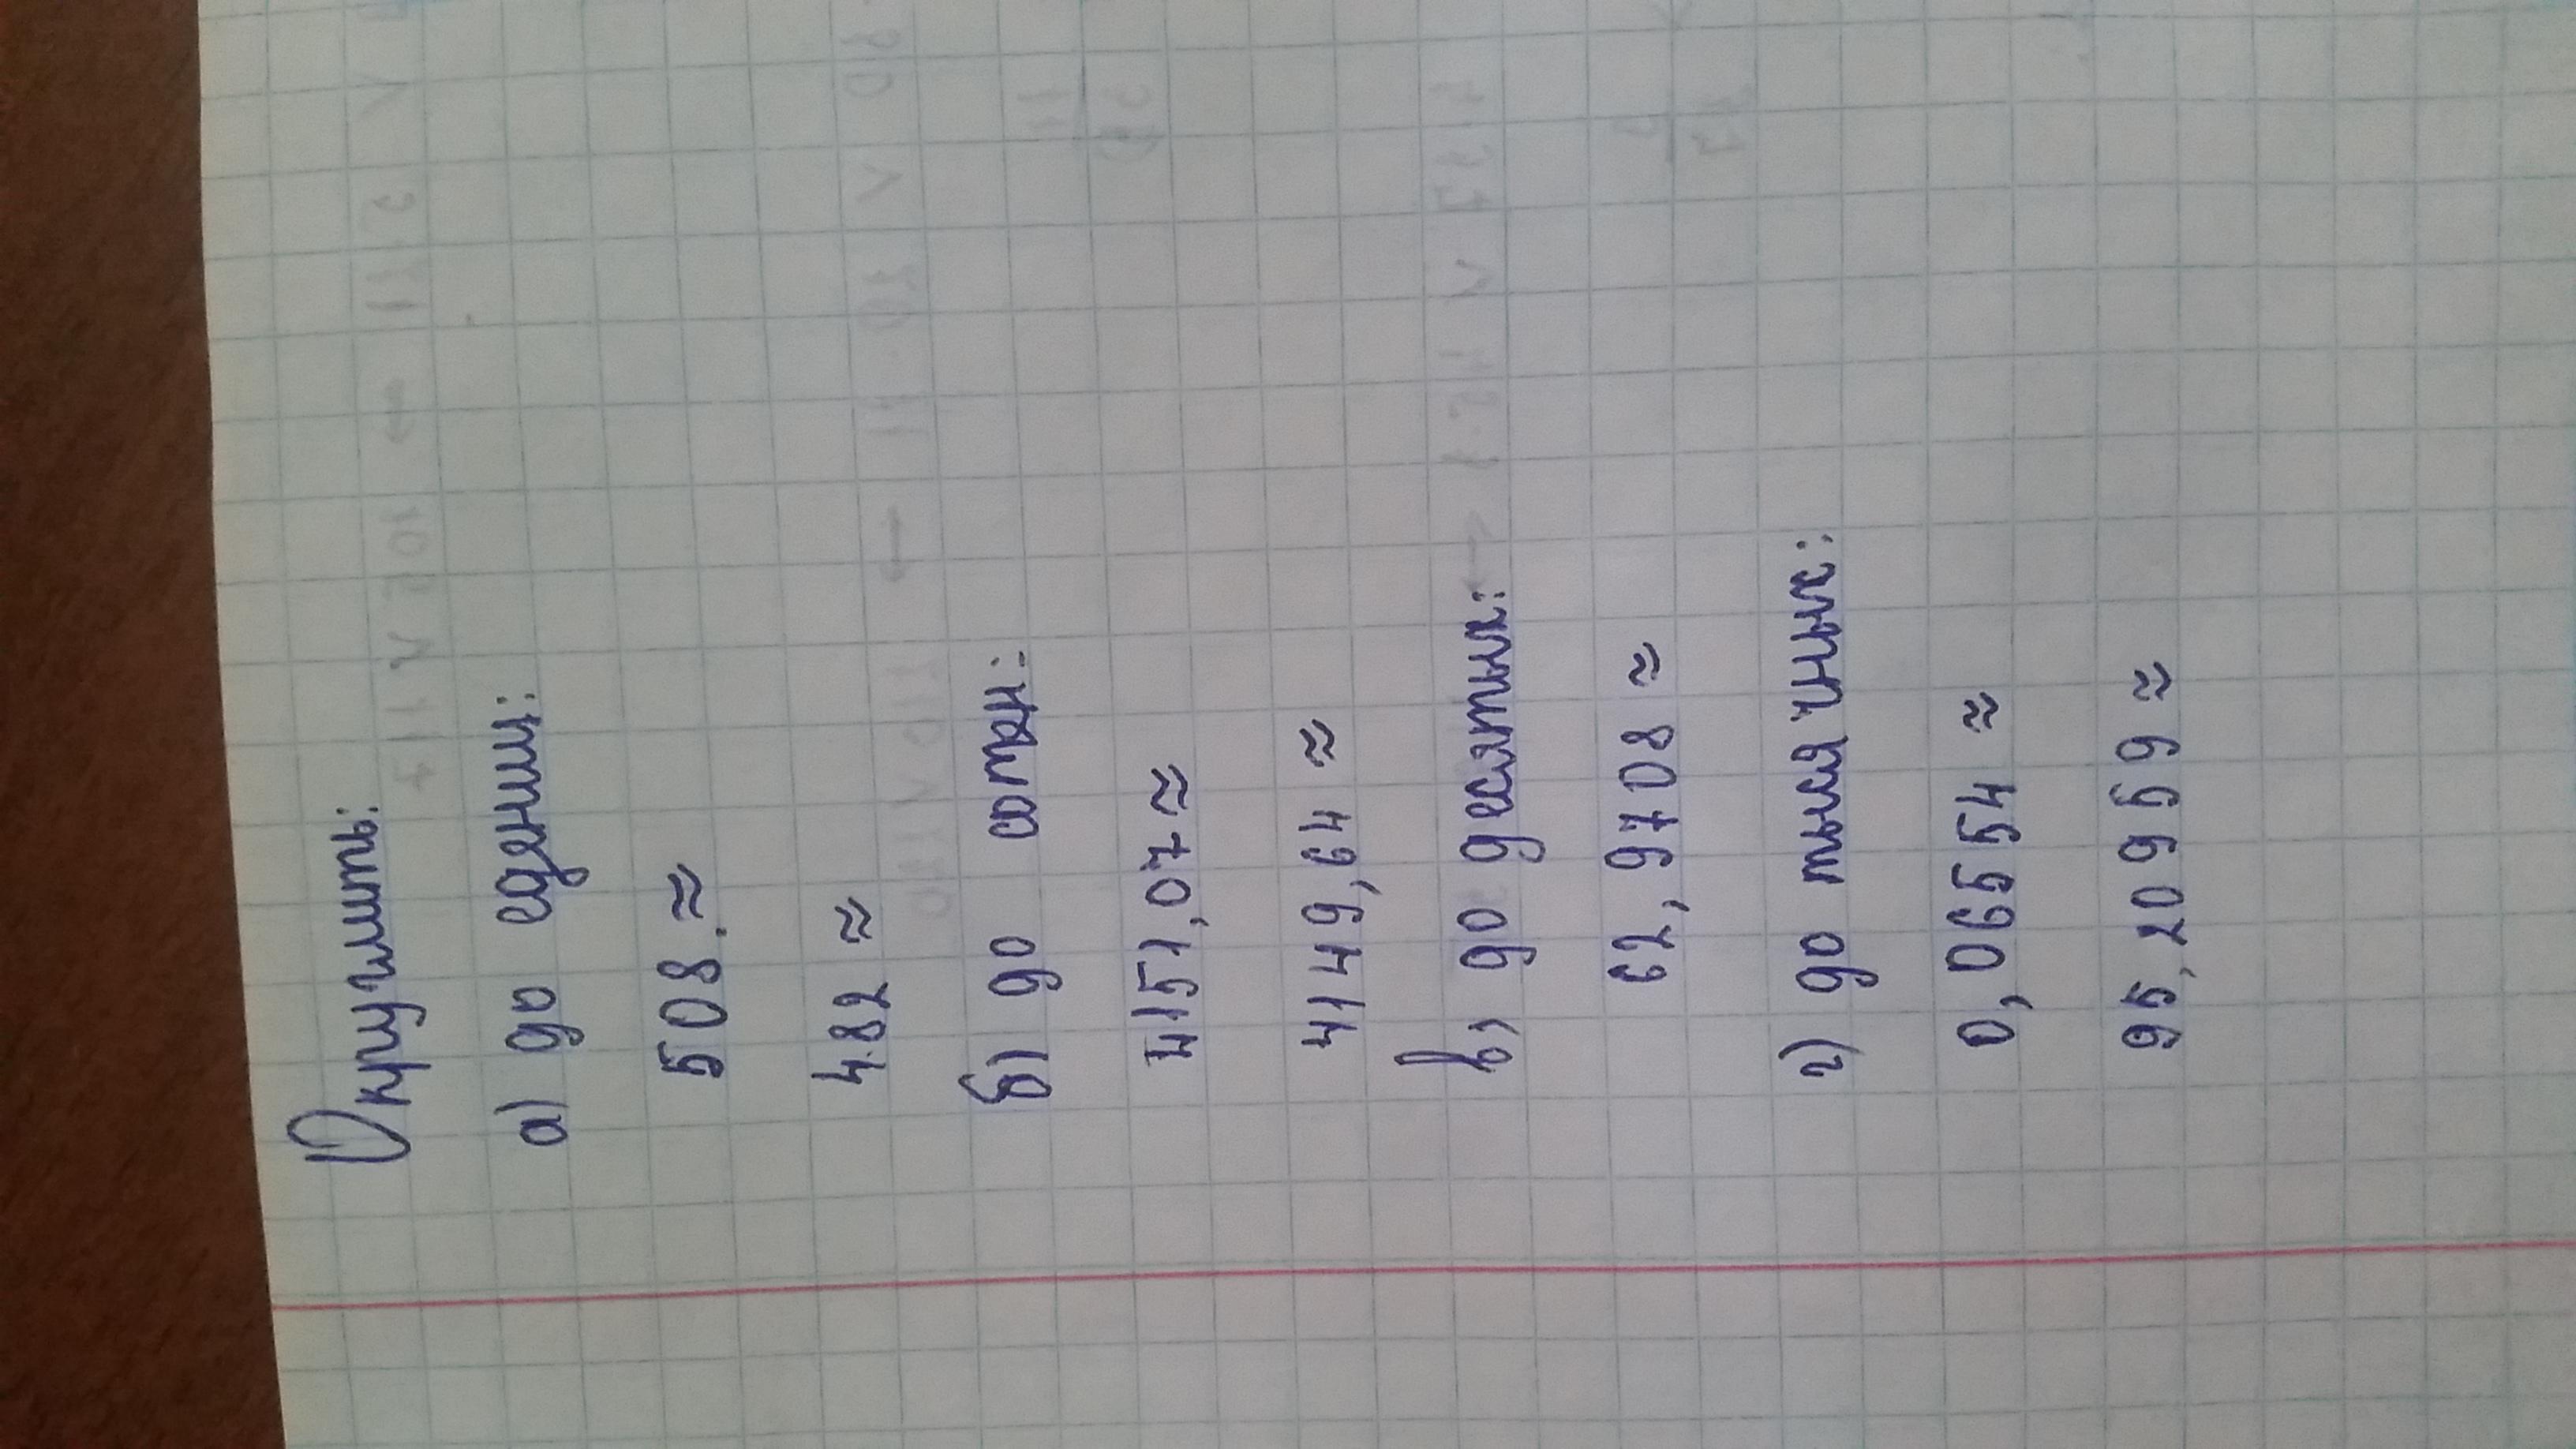 Округлить:
а) до единиц:
508.≈
482 ≈
б) до сотен:
4151,07≈
4149,64 ≈
в) до десятых:
62,9708 ≈
г) до тысячных:
0,06554 ≈
95,209559≈